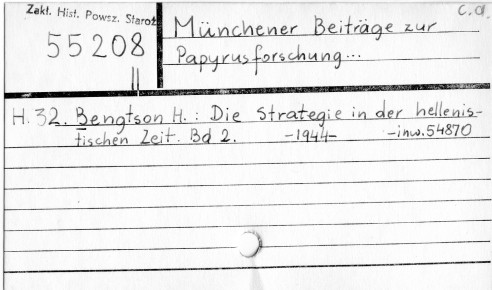 Zakł. Hist. Powsz. Staroż.
55208
II
c.d.
Münchener Beiträge zur
Papyrusforschung...
H. 32. Bengtson H. : Die Strategie in der hellenis-
tischen Zeit. Bd 2. -1944- -inw.54870